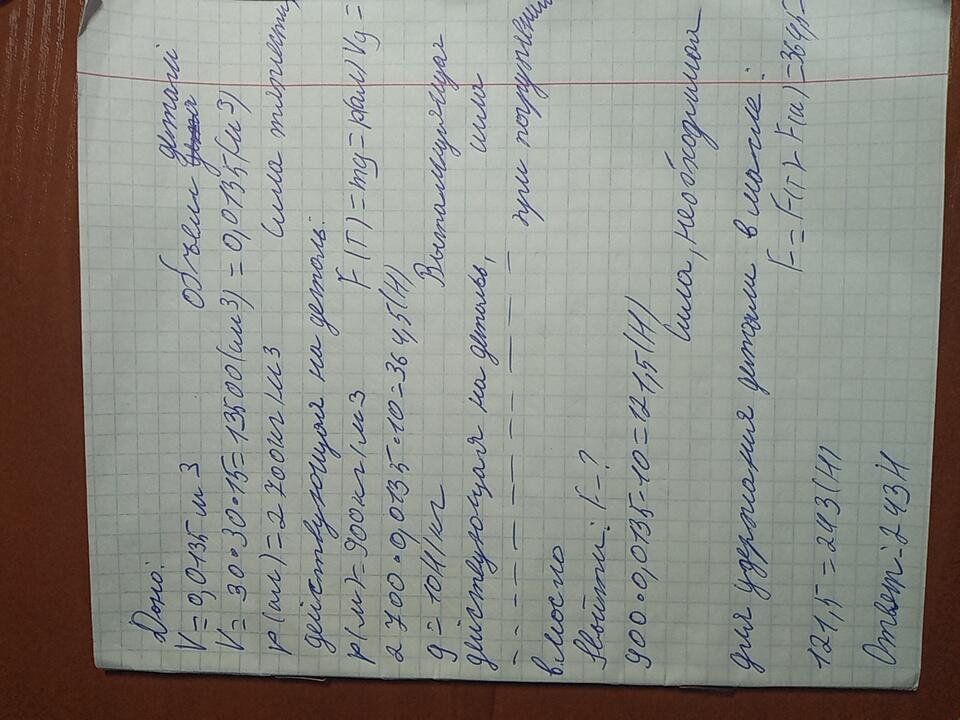 Дано:
V = 0,0135 м3 Объем детали
V = 30•30•15=13500(см3) = 0,0135(м3)
p(ал)=2700кг/м3 Сила тяжести,
действующая на деталь:
p(м)=900кг/м3 F(T)=mg=p(ал)Vg=
2700•0,0135•10=364,5(Н)
g=10Н/кг Выталкивающая
действующая на деталь, сила
- - - - - - - - - - при погружении
в масло
Найти: F-?
900•0,0135=10=121,5(Н)
Сила, необходимая
для удержания детали в масле:
F=F(T)-F(и)=364,5-
121,5=243(Н)
Ответ:243Н